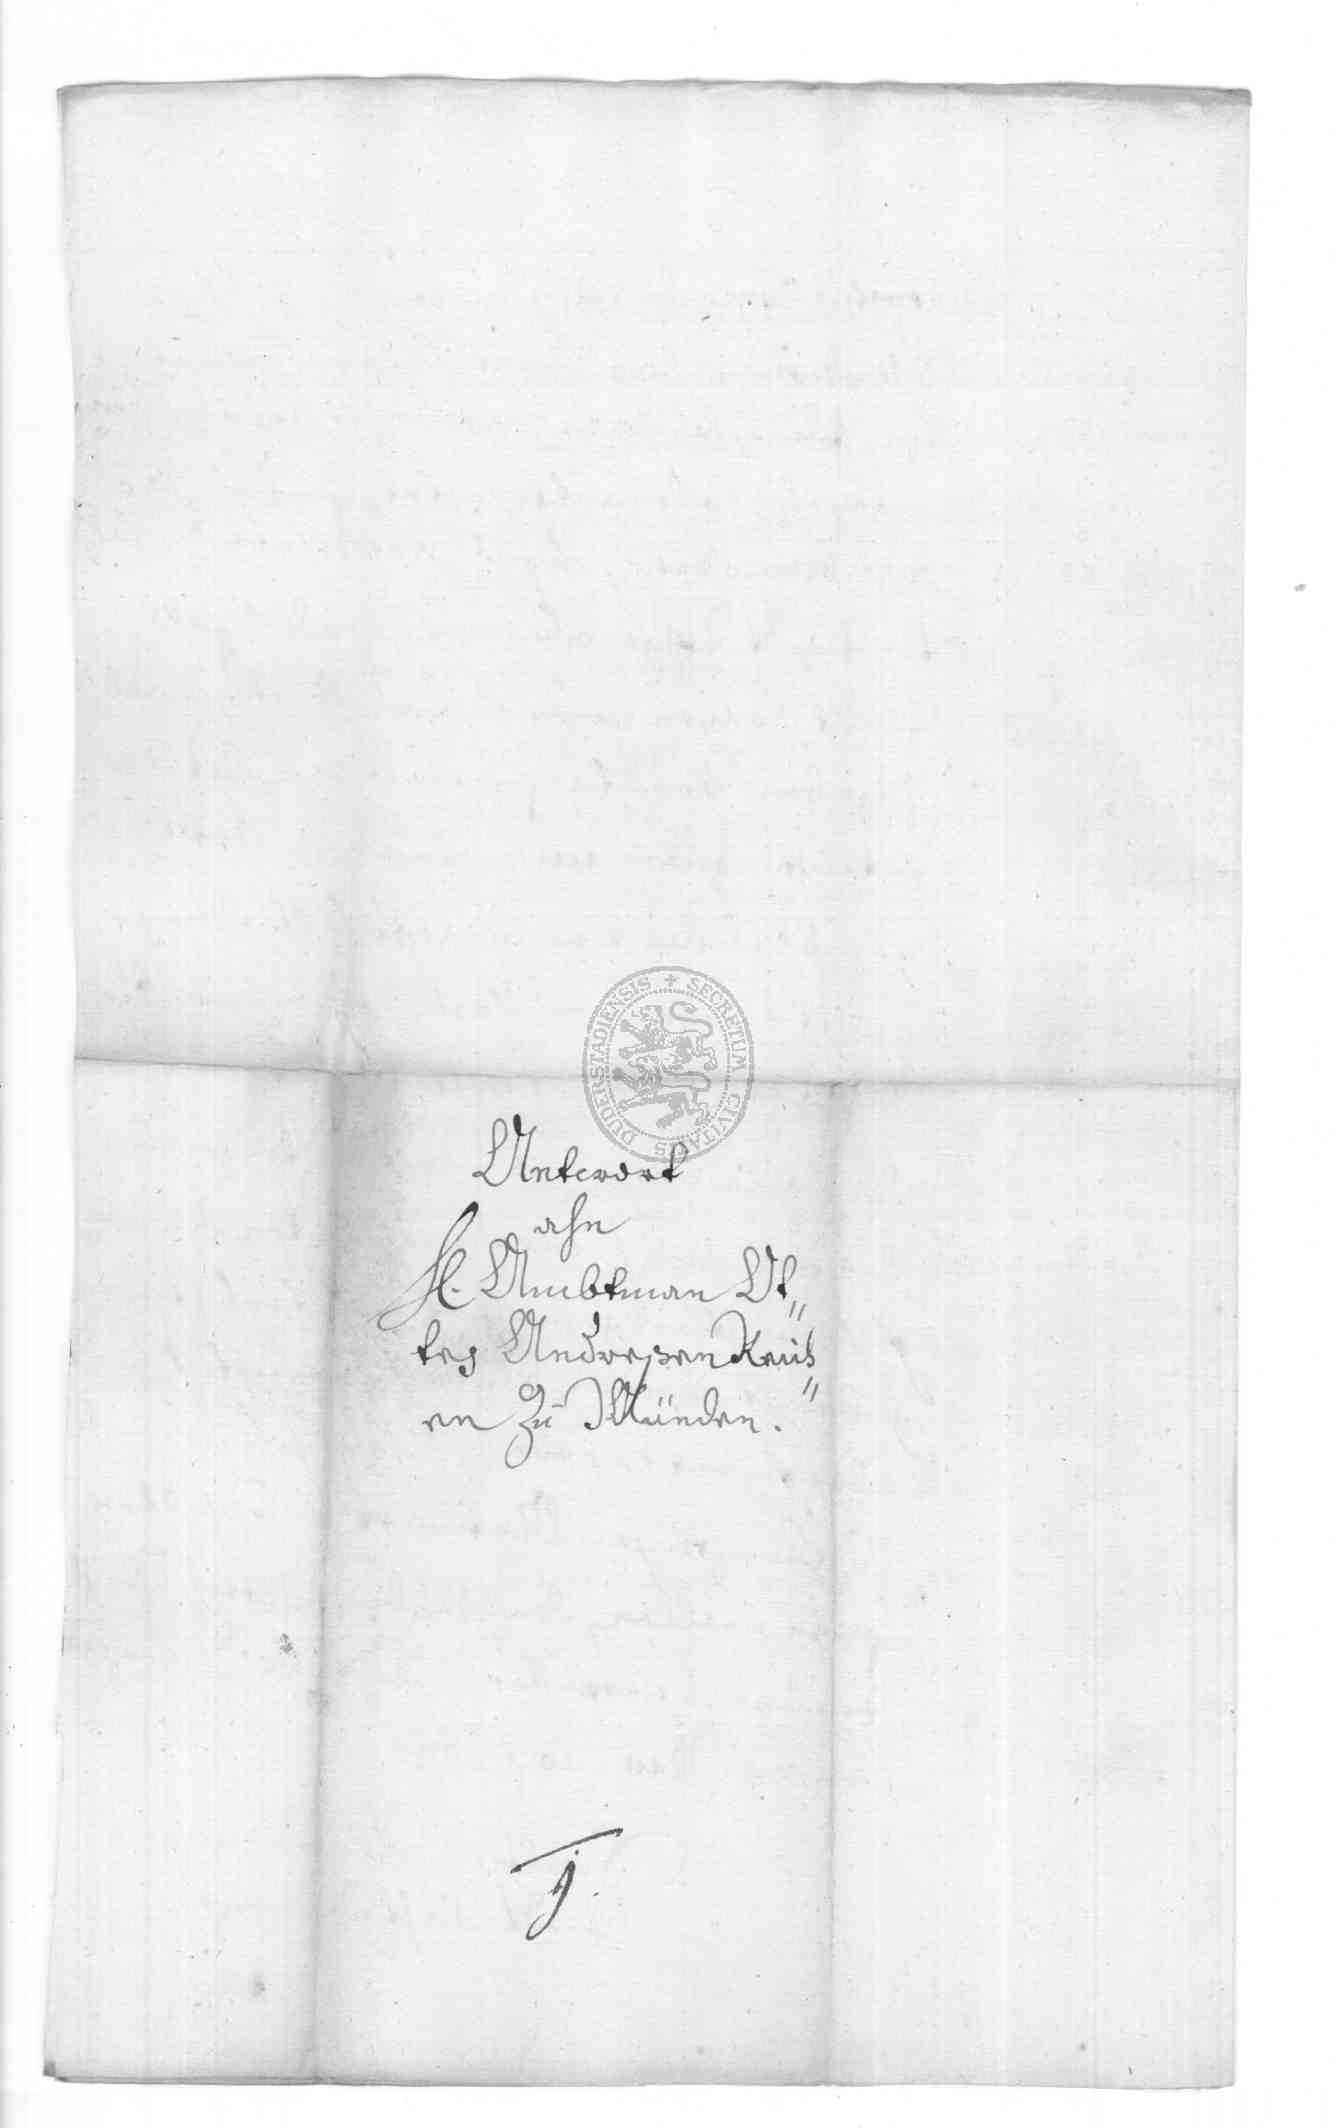 SECRETUM CIVITATIS DUDERSTADIENSIS
Antwort
ahn
H. Ambtman Ot„
ten Andreßen
en Zu Münden.
j.